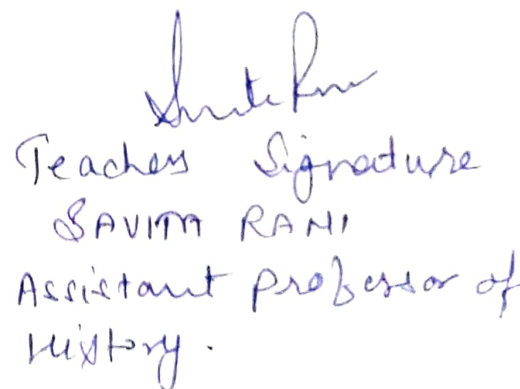 Savita Rani
Teachers Signature
SAVITA RANI
Assistant professor of
History.